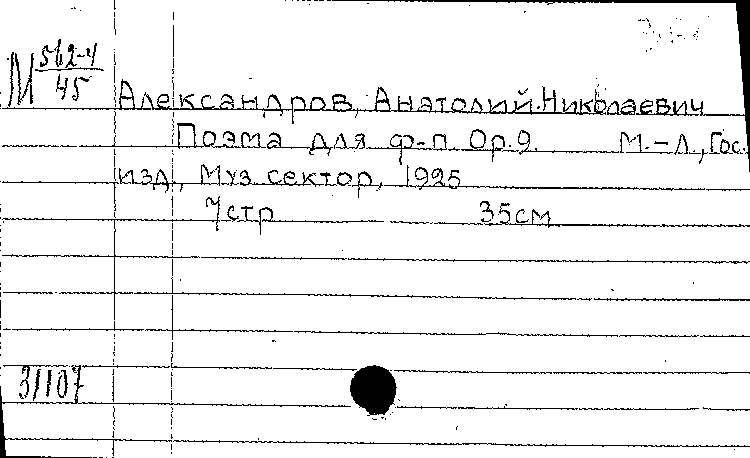 М 562-4
45
Александров, Анатолий Николаевич
Поэма для ф-п. Ор.9. М.-Л., Гос.
изд., Муз сектор, 1925
7 стр 35 см
31107